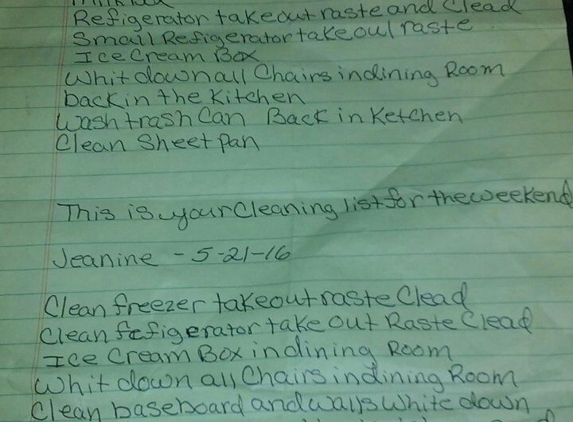 Refigerator takeout raste and Clead
Small Refigerator takeoul raste
Ice Cream Box
Whit down all Chairs in dining Room
back in the Kitchen
Wash trash Can Back in Ketchen
Clean Sheet pan
This is your Cleaning list for the weekend
Jeanine - 5-21-16
Clean freezer takeout raste Clead
Clean fefigerator take out Raste Clead
Ice Cream Box in dining Room
Whit down all Chairs in dining Room
Clean baseboard and walls White down